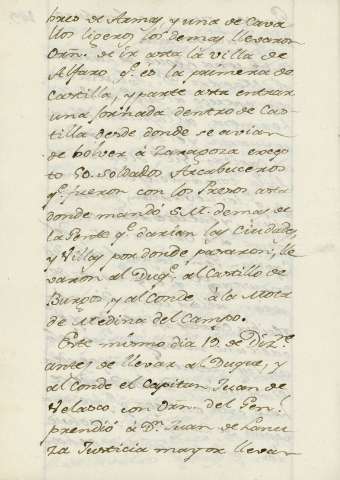 bres de Armas, y una de Cava
llos ligeros, los demas llevaron
Orn. de ir asta la villa de
Alfaro q.e es la primera de
Castilla, y parte asta entrar
una jornada dentro de Cas
tilla desde donde se avian
de bolver á Zaragoza ecep
to 50 Soldados Arcabuceros
q.e fueron con los Presos asta
donde mandó S.M. demas de
la Gente q.e darian las Ciudades
y Villas por donde pasaron, lle
varon al Duq.e al Castillo de
Burgos, y al Conde á la Mota
de Medina del Campo.
Este mismo dia 19 de Diz.e
antes de llevar al Duque, y
al Conde el Capitan Juan de
Velasco, con Orn. del Gen.l
prendió á D.n Juan de Lanu
za Justicia mayor llevan